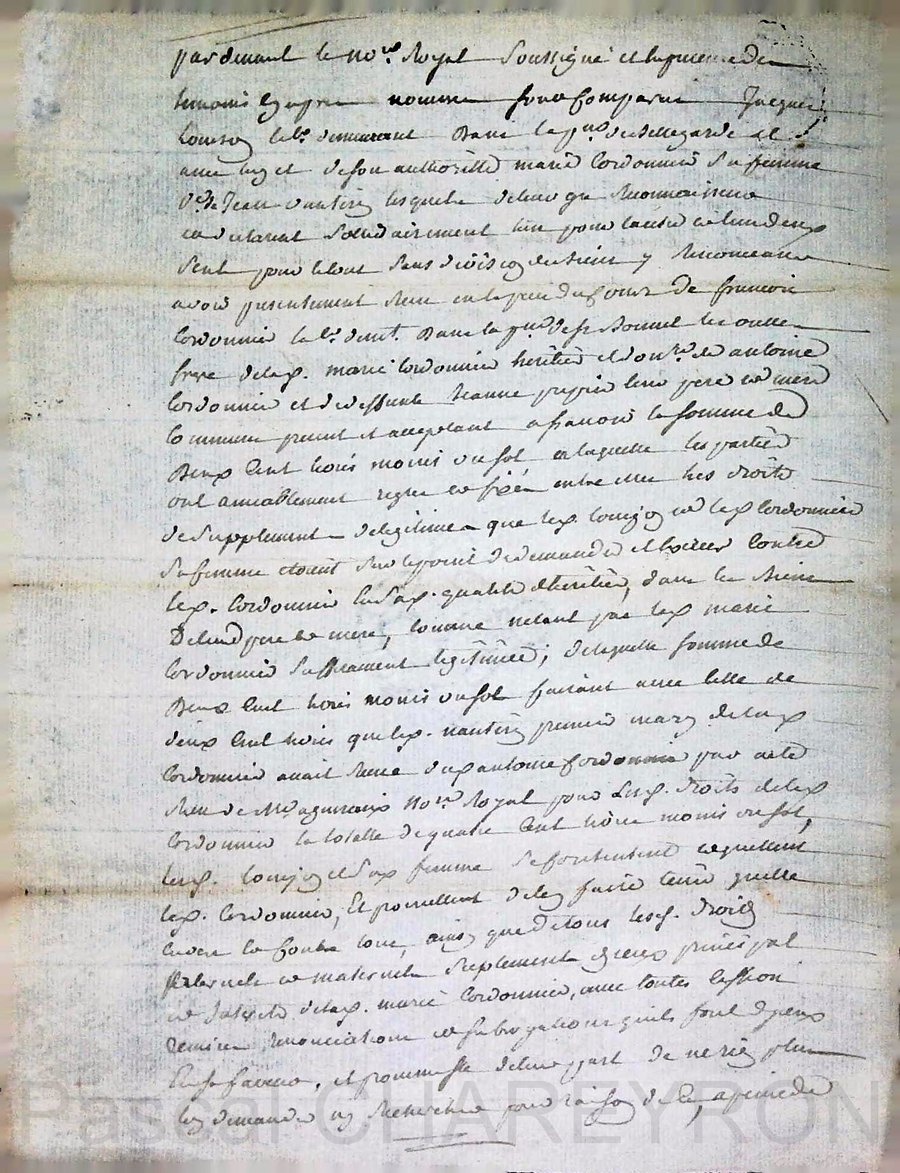 pardevant le nore. Royal soussigné et en presence des
temoins cy apres nommes furent comparus Jacques
lab. demeurant dans la psse de Bellegarde et
avec luy et de son authoritté marie Cordonnier sa femme
ve. de Jean nautin lesquels de leur gré
solidairement l'un pour l'autre et l'un d'eux
seul pour le tout sans division y Renonceant
avoir presentement Receu de francois
Cordonnier lab. demt. dans la psse de st Bonnet
frere de lad. marie Cordonnier heritier et don.re de antoine
Cordonnier et de deffunte Jeanne leur pere et mere
communs present et acceptant a scavoir la somme de
Deux Cent livres moins un sol a laquelle les parties
ont amiablement reglee et fixée entre elles les droits
de supplement de legitime que led. et lad. Cordonnier
sa femme etoient sur le point de demander contre
led. Cordonnier en sad. qualité d'heritier, dans les Biens
De leurd. pere et mere, comme n'etant pas lad. marie
Cordonnier suffisament legitimée; de laquelle somme de
Deux Cent livres moins un sol faisant avec celle de
deux Cent livres que led. nautin premier mary de lad.
Cordonnier avait Receue dud. antoine Cordonnier par acte
Receu de Me nore. Royal pour lesd. droits de lad.
Cordonnier la totalle de quatre Cent livres moins un sol,
lesd. et sad. femme se contentent en quittent
led. Cordonnier, Et promettent de l'en faire tenir quitte
envers et contre tous, ainsy que de tous lesd. droits
paternels et maternels supplement d'yceux principal
et interets de lad. marie Cordonnier, avec toutes cession
remises, renonciations et subrogations qu'ils font d'yceux
en sa faveur, et promesse de leur part de ne rien plus
luy demander ny Rechercher pour raison de ce, a peine de
Pascal CHAREYRON